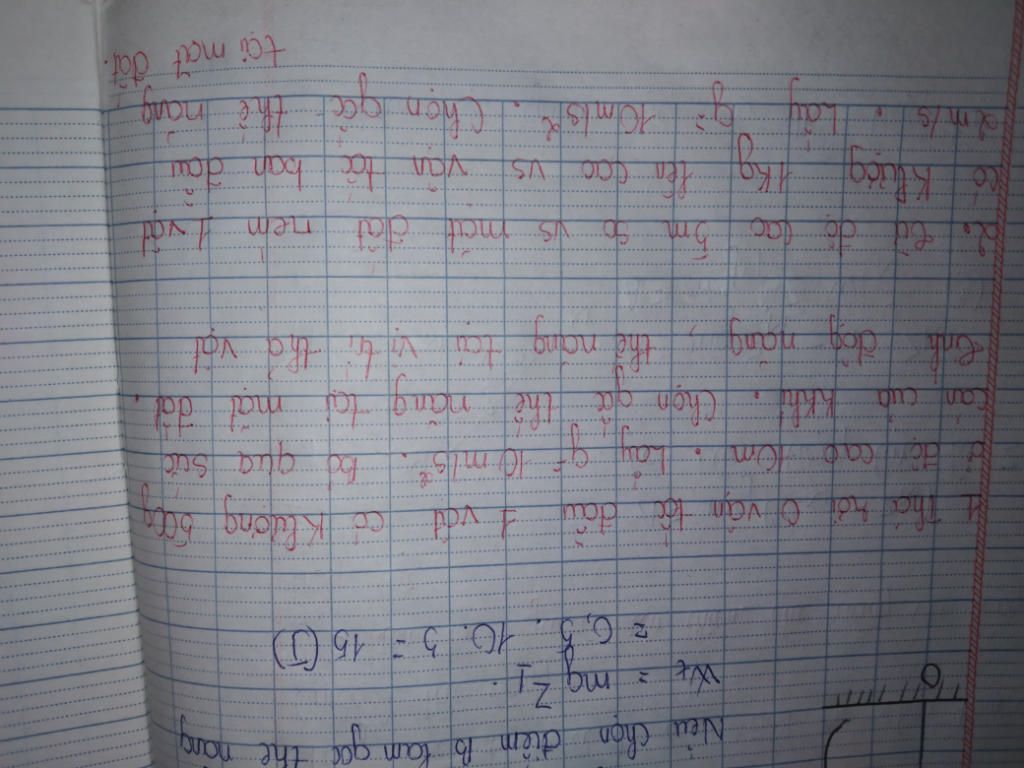 Nếu chọn điểm B làm gốc thế năng
Wt = mg Z1.
= 0,5 . 10 . 3 = 15 (J)
O
1. Thả rơi 0 vận tốc đầu 1 vật có klượng 500g
ở độ cao 10m . Lấy g = 10m/s². Bỏ qua sức
cản của kkhí. Chọn gốc thế năng tại mặt đất.
tính động năng, thế năng tại vị trí thả vật
2. Từ độ cao 5m so vs mặt đất ném 1 vật
có klượng 1kg lên cao vs vận tốc ban đầu
2m/s . Lấy g = 10m/s². Chọn gốc thế năng
tại mặt đất.